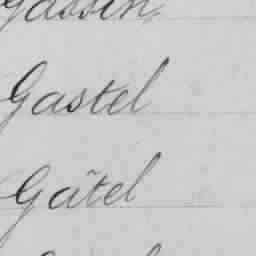 Gassin
Gastel
Gâtel